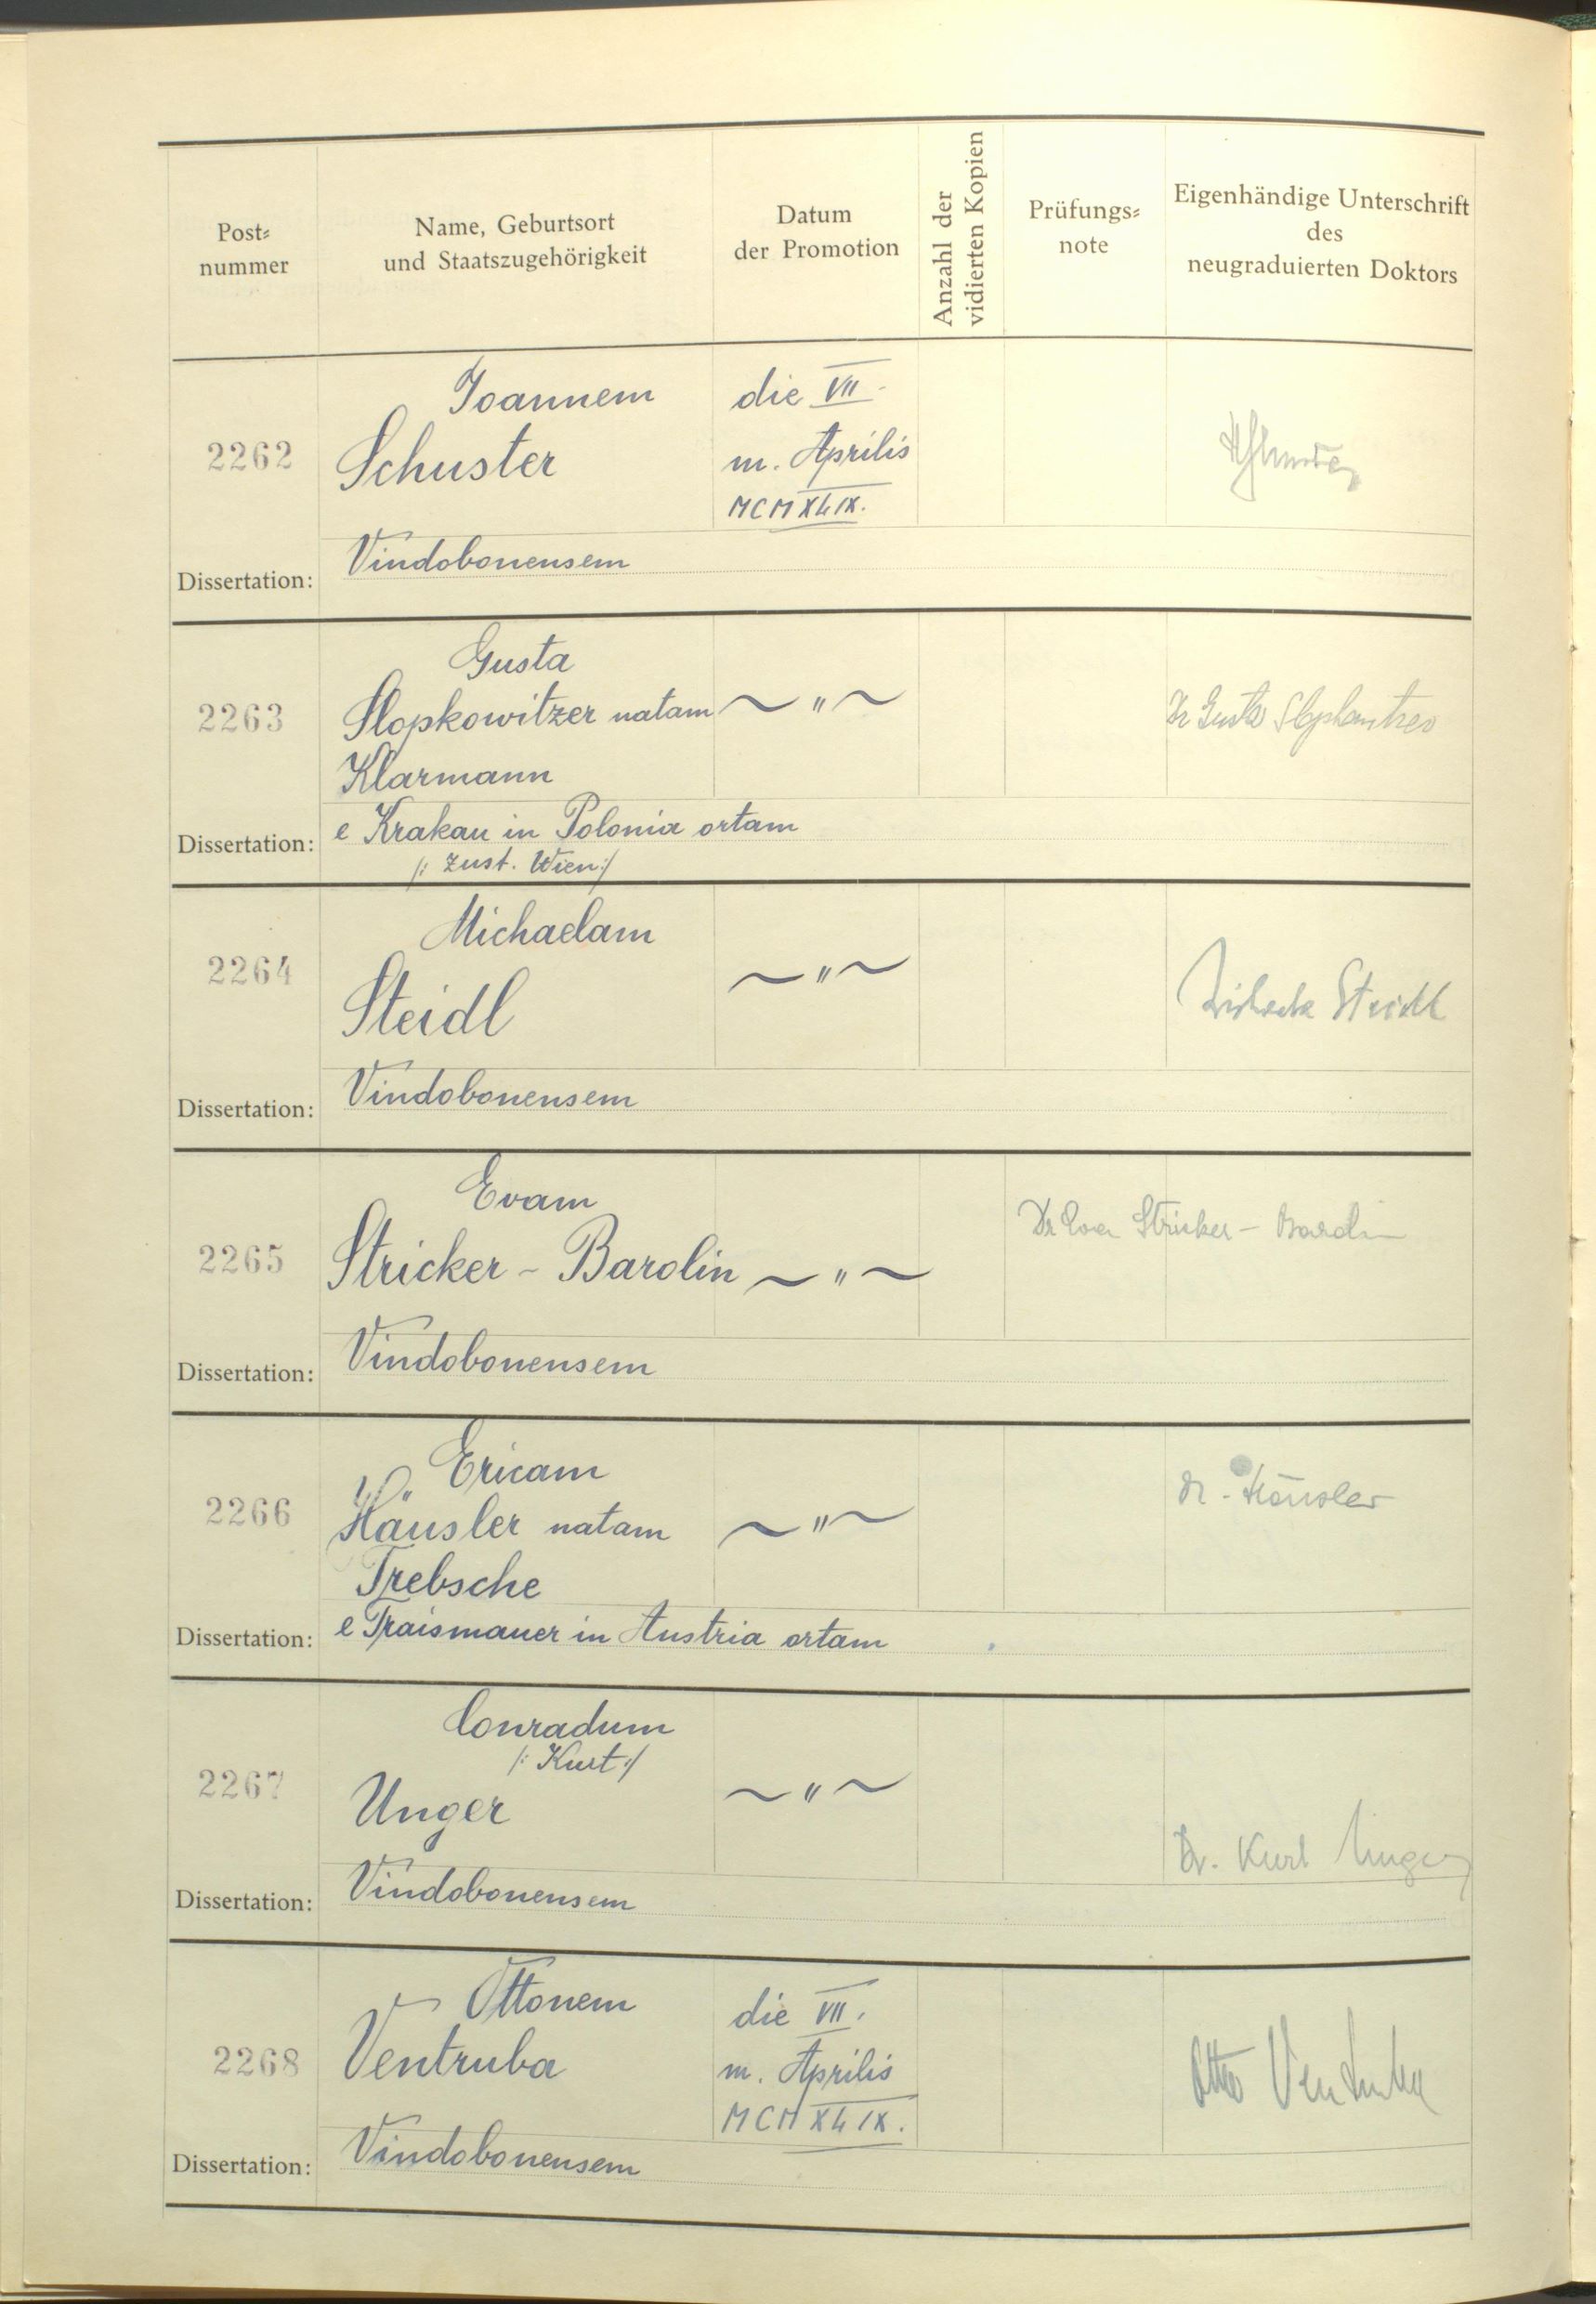 Post-
nummer
Name, Geburtsort
und Staatszugehörigkeit
Datum
der Promotion
Anzahl der
vidierten Kopien
Prüfungs-
note
Eigenhändige Unterschrift
des
neugraduierten Doktors
2262
Joannem
Schuster
die VII.
m. Aprilis
MCMXLIX.
Dissertation:
Vindobonensem
2263
Gusta
Slopkowitzer natam
Klarmann
~ " ~
Dr Gusta Slopkowitzer
Dissertation:
e Krakau in Polonia ortam
/: zust. Wien :/
2264
Michaelam
Steidl
~ " ~
Michaela Steidl
Dissertation:
Vindobonensem
2265
Evam
Stricker - Barolin
~ " ~
Dr Eva Stricker - Barolin
Dissertation:
Vindobonensem
2266
Ericam
Häusler natam
Trebsche
~ " ~
Dr. Häusler
Dissertation:
e Traismauer in Austria ortam
2267
Conradum
/: Kurt :/
Unger
~ " ~
Dr. Kurt Unger
Dissertation:
Vindobonensem
2268
Ottonem
Ventruba
die VII.
m. Aprilis
MCMXLIX.
Otto Ventruba
Dissertation:
Vindobonensem